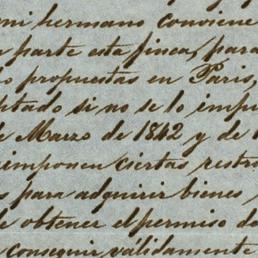 mi hermano conviene
parte esta finca, para
propuestas en Paris,
ptado si no se lo impi
de Marzo de 1842 y de
imponen ciertas restr
s para adquirir bienes
de obtener el permiso de
conseguir válidamente